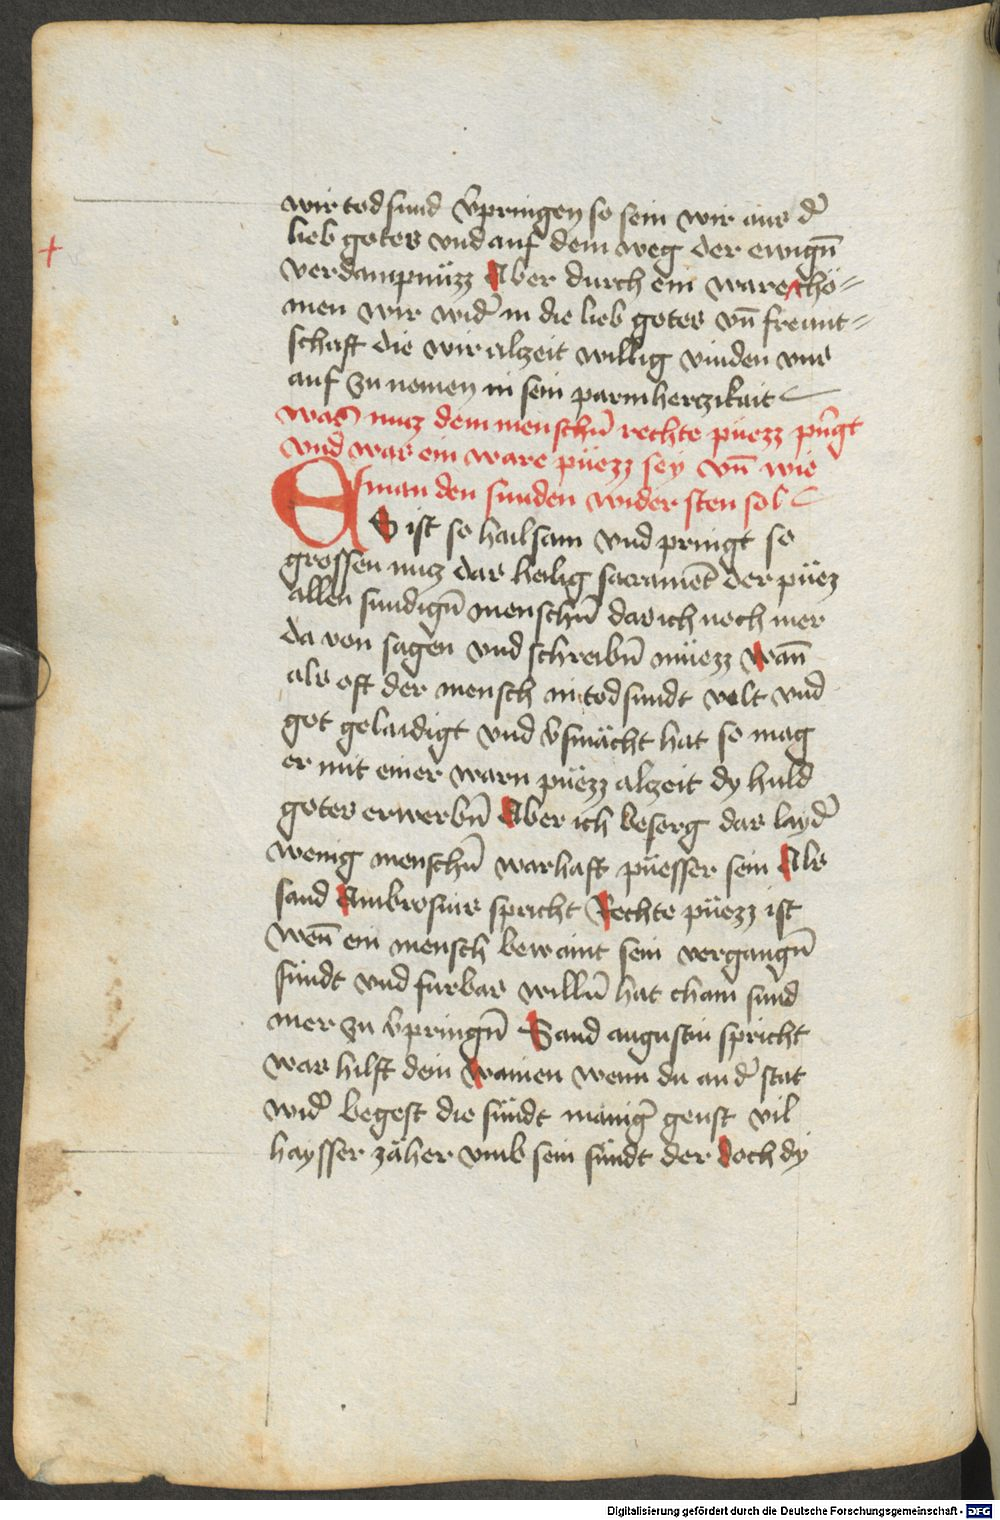 wir tod sund v̄pringen so sein wir aus d̄
lieb gotes vnd auf dem weg der ewign̄
verdampnüzz Aber durch ein ware chö=
men wir wid̄ in die lieb gotes vn̄ freunt=
schaft die wir alzeit willig vinden vns
auf zu nemen in sein parmherczikait
was nucz dem menschn̄ rechte püezz pn̄gt
vnd was ein ware püezz sey vn̄ wie
man den sunden wider sten sol
ES ist so hailsam vnd pringt so
grossen nucz das heilig sacramēt der püez
allen sundign̄ menschn̄ das ich noch mer
da von sagen vnd schreibn̄ müezz wan̄
als oft der mensch in tod sundt velt vnd
got gelaidigt vnd v̄smächt hat so mag
er mit einer warn püezz alzeit dy huld
gotes erwerbn̄ Aber ich besorg das layd̄
wenig menschn̄ warhaft püesser sein Als
sand Ambrosius spricht Rechte püezz ist
wen̄ ein mensch bewaint sein vergangn̄
sündt vnd furbas willn̄ hat cham sund
mer zu v̄pringn̄ Sand augustin spricht
was hilft dein wainen wenn du an d̄ stat
wid̄ begest die sündt maniḡ geust vil
haysser zäher vmb sein sündt der doch dy
Digitalisierung gefördert durch die Deutsche Forschungsgemeinschaft - DFG